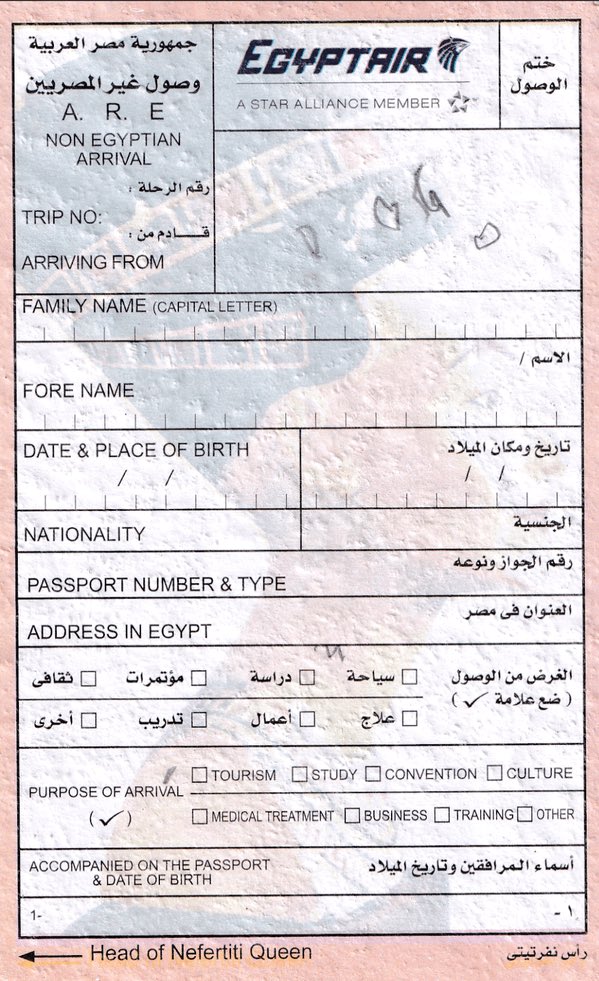 جمهورية مصر العربية
وصول غير المصريين
A. R. E
NON EGYPTIAN
ARRIVAL
رقم الرحلة :
TRIP NO:
قـــادم من :
ARRIVING FROM
EGYPTAIR
A STAR ALLIANCE MEMBER
ختم
الوصول
FAMILY NAME (CAPITAL LETTER)
الاسم /
FORE NAME
DATE & PLACE OF BIRTH تاريخ ومكان الميلاد
/ / / /
NATIONALITY الجنسية
رقم الجواز ونوعه
PASSPORT NUMBER & TYPE
العنوان فى مصر
ADDRESS IN EGYPT
الغرض من الوصول سياحة دراسة مؤتمرات ثقافى
( ضع علامة ✓ ) علاج أعمال تدريب أخرى
PURPOSE OF ARRIVAL TOURISM STUDY CONVENTION CULTURE
( ✓ ) MEDICAL TREATMENT BUSINESS TRAINING OTHER
ACCOMPANIED ON THE PASSPORT أسماء المرافقين وتاريخ الميلاد
& DATE OF BIRTH
1- ١ -
Head of Nefertiti Queen رأس نفرتيتى